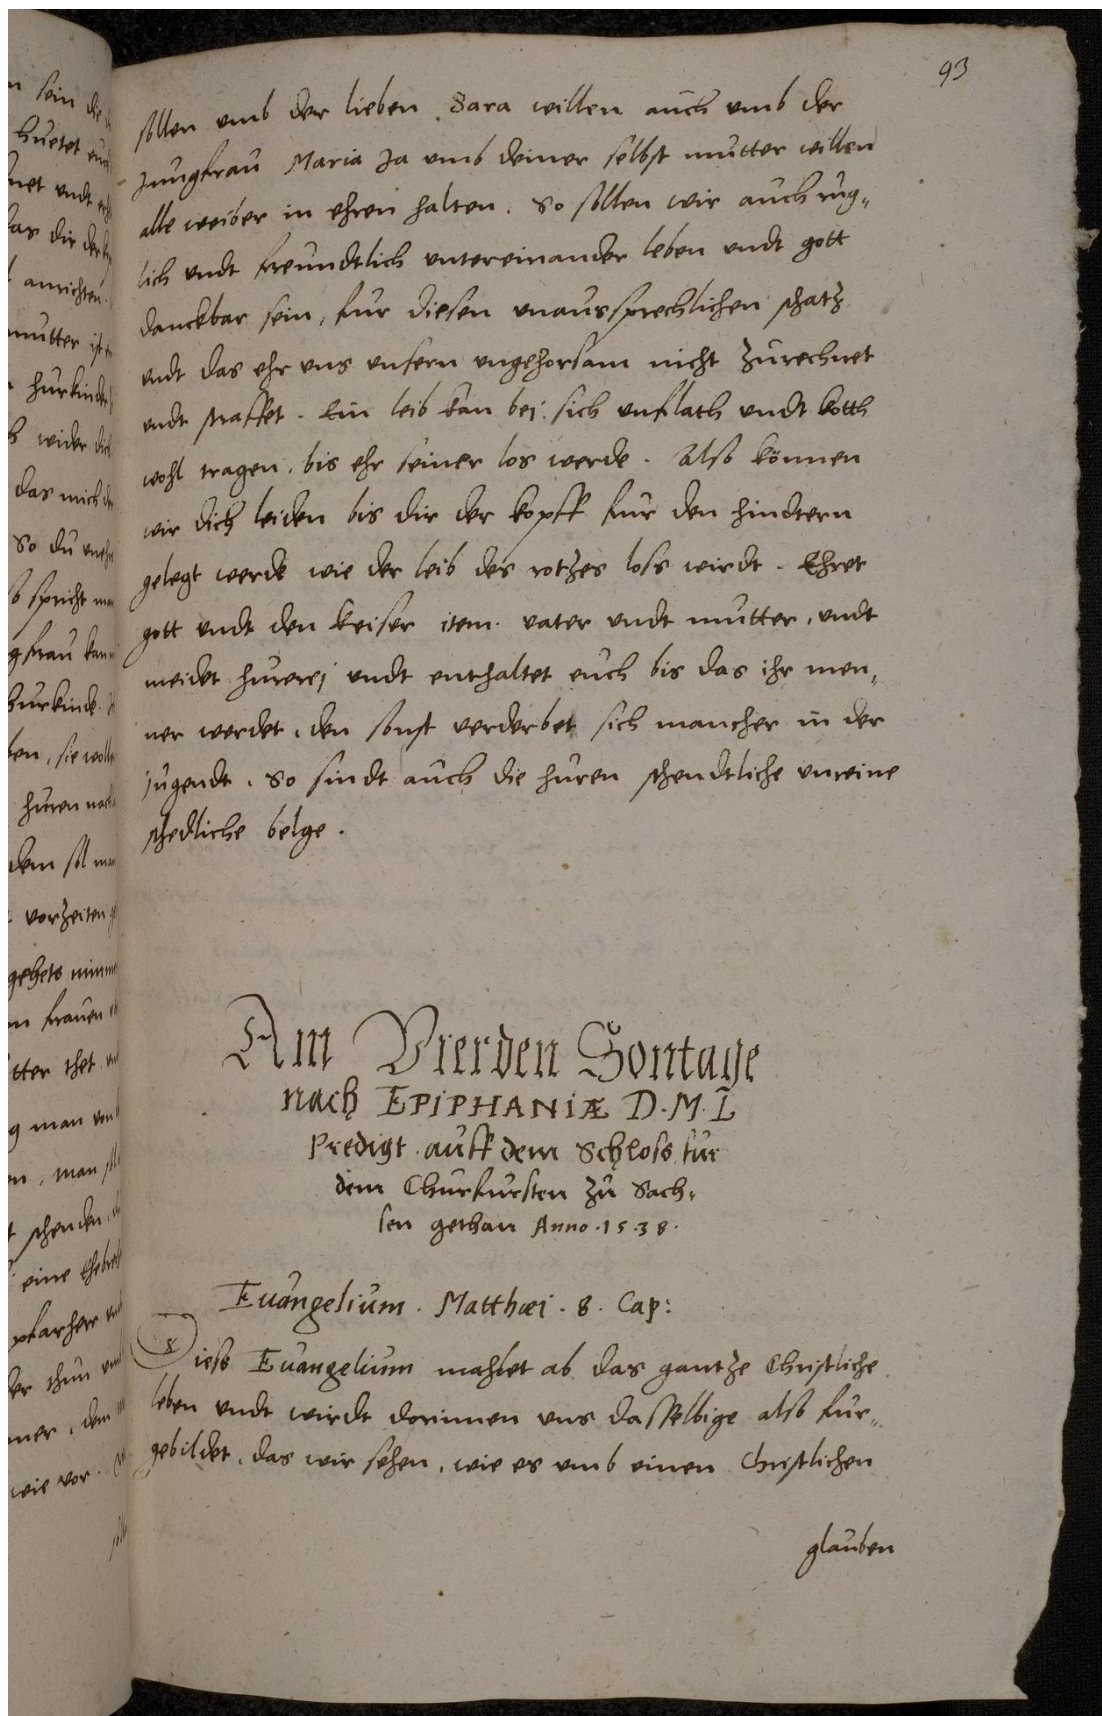 93
sollen umb der lieben Sara willen auch umb der
Jungfrau Maria Ja umb deiner selbst mutter willen
alle weiber in ehren halten. So sollen wir auch zug,,
lich undt freundtlich untereinander leben undt gott
danckbar sein, fur diesen unaussprechlichen schatz
undt das ehr uns unsern ungehorsam nicht zurechnet
undt straffet. Ein leib kan bej sich unflath undt koth
wohl tragen, bis ehr seiner los werde. Also können
wir dich leiden bis dir der kopff fur den hindtern
gelegt werde wie der leib des rotzes loss wirdt. Ehret
gott undt den keiser item vater undt mutter, undt
meidet hurerej undt enthaltet euch bis das ihr men,,
ner werdet, den sonst verderbet sich mancher in der
jugendt. So sindt auch die huren schendtliche unreine
schedliche belge.
Am Vierden Sontage
nach EPIPHANIÆ D. M. L
Predigt auff dem Schloss fur
dem Churfursten zu Sach,
sen gethan Anno. 1538.
Evangelium. Matthæi. 8. Cap:
Diess Evangelium mahlet ab das gantze Christliche
leben undt wirdt dorinnen uns dasselbige also fur,,
gebildet, das wir sehen, wie es umb einen Christlichen
glauben